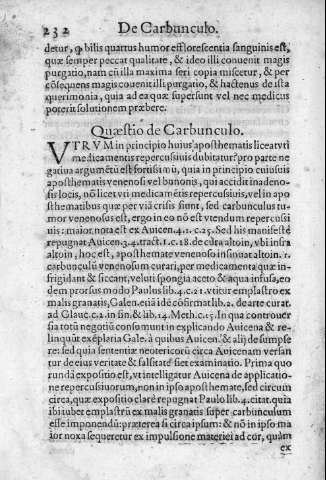 232 De Carbunculo.
detur, ꝙ bilis quartus humor efflorescentia sanguinis est,
quæ semper peccat qualitate, & ideo illi conuenit magis
purgatio, nam cũ illa maxima seri copia miscetur, & per
cõsequens magis couenit illi purgatio, & hactenus de ista
querimonia, quia ad ea quæ supersunt vel nec medicus
poterit solutionem præbere.
Quæstio de Carbunculo.
VTRVM in principio huius aposthematis liceat vti
medicamentis repercusiuis dubitatur? pro parte ne
gatiua argumẽtũ est fortisi mũ, quia in principio cuiusuis
aposthematis venenosi vel bubonis, qui accidit in adeno-
sis locis, nõ licet vti medicamẽtis repercusiuis, vel in apo
sthematibus quæ per viã crisis fiunt, sed carbunculus tu-
mor venenosus est, ergo in eo nõ est vtendum repercusi
uis: maior nota est ex Auicen. 4.1.c.25. Sed his manifestè
repugnat Auicen. 3.4.tract.1.c.18. de cura altoin, vbi infra
altoin, hoc est, aposthemate venenoso insinuat altoin. 1.
carbunculũ venenosum curari, per medicamenta quæ in-
frigidant & siccant, veluti spongia aceto & aqua infusa, eo
dem prorsus modo Paulus lib. 4.c.21. vtitur emplastro ex
malis granatis, Galen. etiã idẽ cõfirmat lib. 2. de arte curat.
ad Glauc. c.2. in fin. & lib. 14. Meth. c.15. In qua controuer
sia totũ negotiũ consumunt in explicando Auicena & re-
linquũt exẽplaria Gale. à quibus Auicen. & alij desumpse
re: sed quia sententiæ neotericorũ circa Auicenam versan
tur de eius veritate & falsitate fiet examinatio. Prima quo
rundã expositio est, vt intelligatur Auicena de applicatio-
ne repercusiuorum, non in ipso aposthemate, sed circum
circa, quæ expositio clarè repugnat Paulo lib. 4. citat. quia
ibi iubet emplastrũ ex malis granatis super carbunculum
esse imponendũ: præterea si circa ipsum: & nõ in ipso ma
ior noxa sequeretur ex impulsione materiei ad cor, quàm
ex